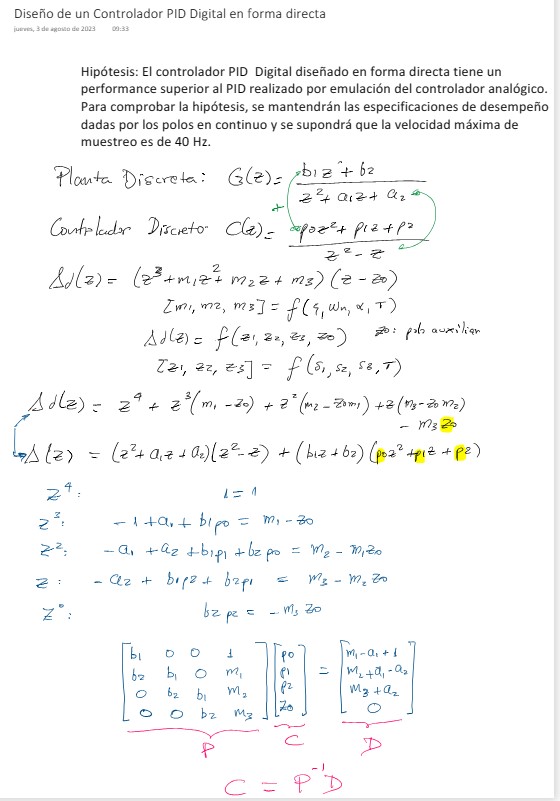 Diseño de un Controlador PID Digital en forma directa
jueves, 3 de agosto de 2023 09:33
Hipótesis: El controlador PID Digital diseñado en forma directa tiene un
performance superior al PID realizado por emulación del controlador analógico.
Para comprobar la hipótesis, se mantendrán las especificaciones de desempeño
dadas por los polos en continuo y se supondrá que la velocidad máxima de
muestreo es de 40 Hz.
Planta Discreta: G(z) = (b1z + b2) / (z² + a1z + a2)
+
Controlador Discreto C(z) = (p0z² + p1z + p2) / (z² - z)
Δd(z) = (z³ + m1z² + m2z + m3)(z - z0)
[m1, m2, m3] = f(ζ, ωn, α, T)
Δd(z) = f(z1, z2, z3, z0) z0: polo auxiliar
[z1, z2, z3] = f(s1, s2, s3, T)
Δd(z) = z⁴ + z³(m1 - z0) + z²(m2 - z0m1) + z(m3 - z0m2)
- m3z0
Δ(z) = (z² + a1z + a2)(z² - z) + (b1z + b2)(p0z² + p1z + p2)
z⁴: 1 = 1
z³: -1 + a1 + b1p0 = m1 - z0
z²: -a1 + a2 + b1p1 + b2p0 = m2 - m1z0
z: -a2 + b1p2 + b2p1 = m3 - m2z0
z⁰: b2p2 = -m3z0
[b1 0 0 1] [p0] = [m1 - a1 + 1]
[b2 b1 0 m1] [p1] [m2 + a1 - a2]
[0 b2 b1 m2] [p2] [m3 + a2]
[0 0 b2 m3] [z0] [0]
P C D
C = P⁻¹D